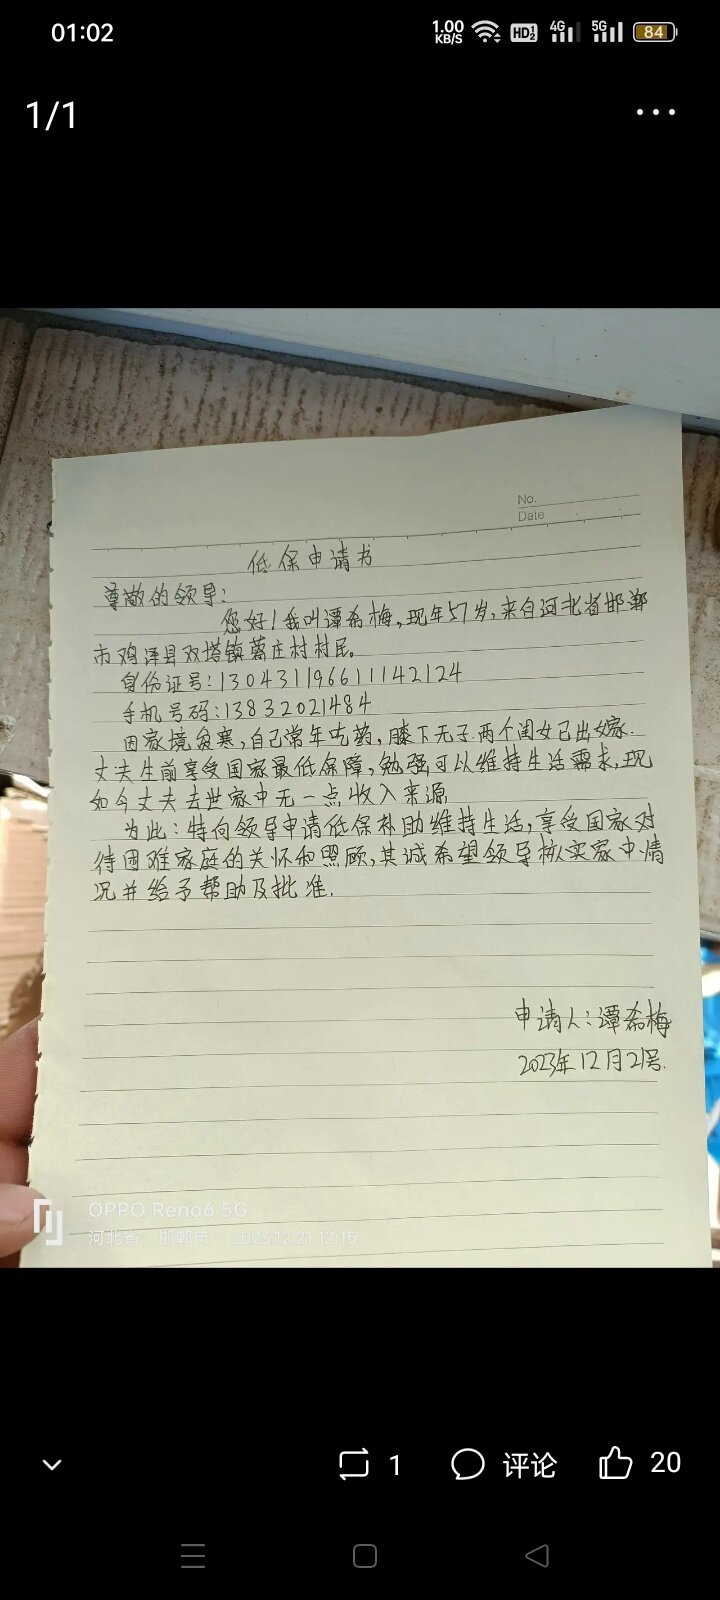 01:02
1.00 KB/S HD 1 2 4G 5G 84
1/1
No.
Date
低保申请书
尊敬的领导：
您好！我叫谭希梅，现年57岁，来自河北省邯郸
市鸡泽县双塔镇蒿庄村村民。
身份证号：130431196611142124
手机号码：13832021484
因家境贫寒，自己常年吃药，膝下无子.两个闺女已出嫁.
丈夫生前享受国家最低保障，勉强可以维持生活需求，现
如今丈夫去世家中无一点收入来源
为此：特向领导申请低保补助维持生活，享受国家对
待困难家庭的关怀和照顾，其诚希望领导核实家中情
况并给予帮助及批准.
申请人：谭希梅
2023年12月21号.
OPPO Reno6 5G
河北省，邯郸市 2023.12.21 12:15
1 评论 20